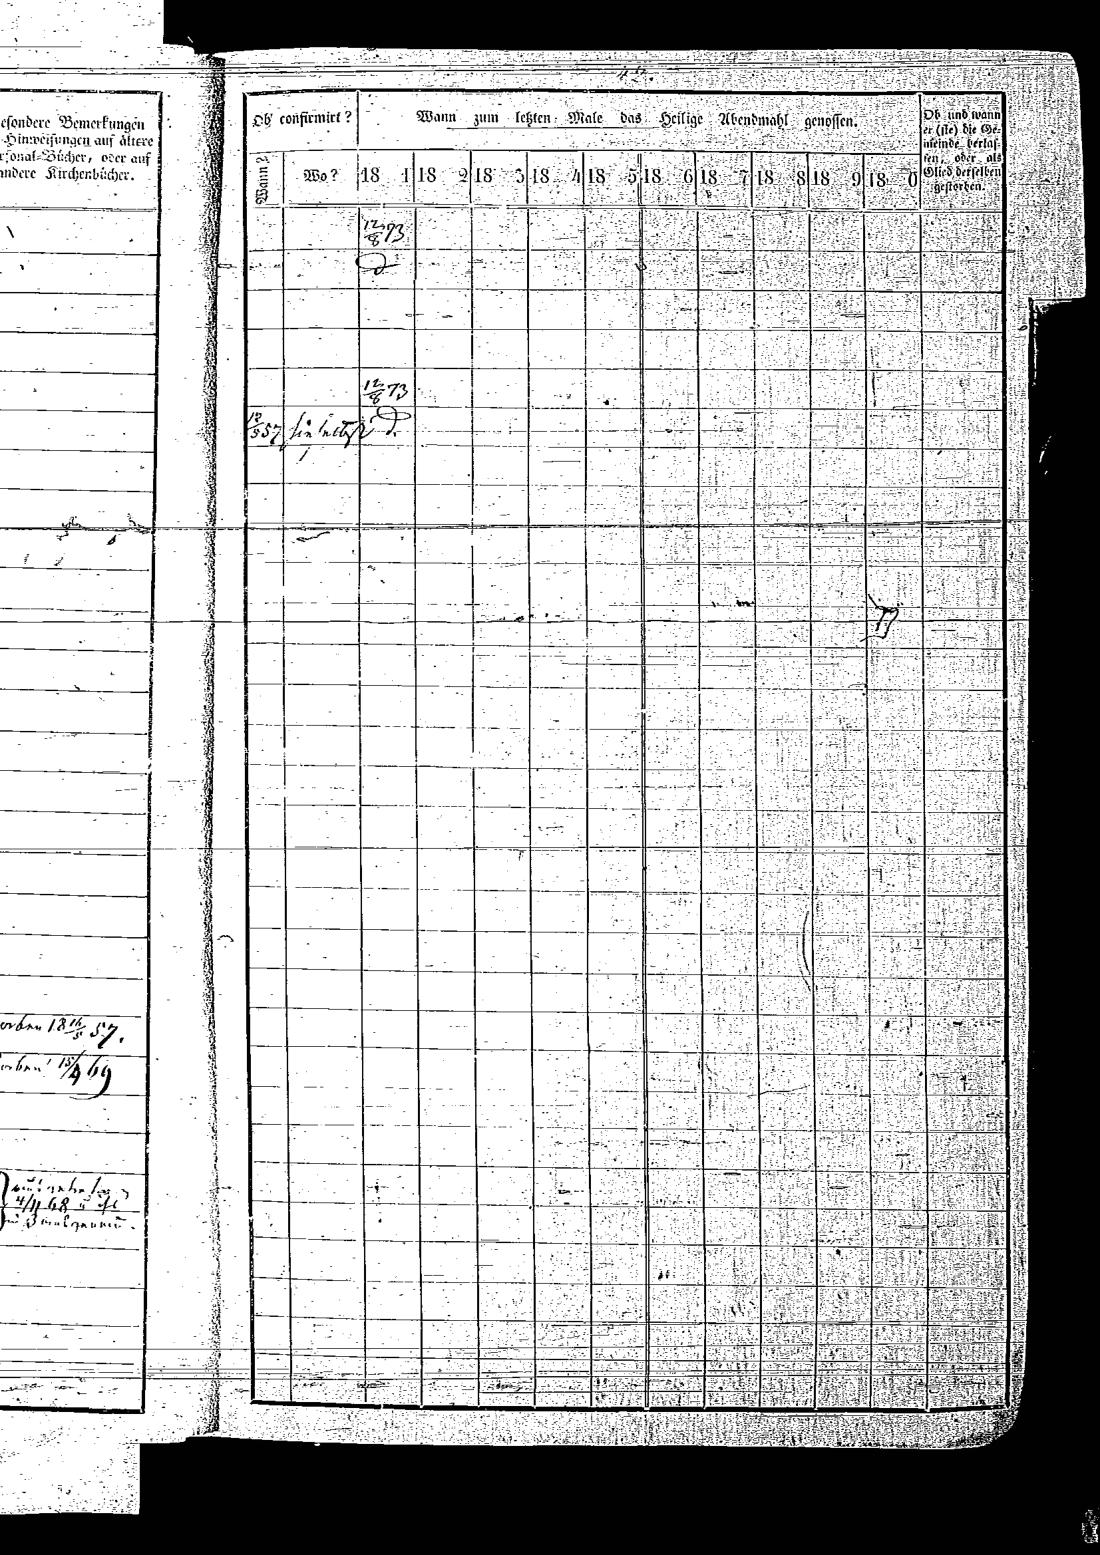 esondere Bemerkungen
Hinweisungen auf ältere
rsonal-Bücher, oder auf
andere Kirchenbücher.
orben 18 16/5 57.
orben 15/4 69
4/11 68
Ob confirmirt?
Wann zum letzten Male das Heilige Abendmahl genossen.
Ob und wann
er (sie) die Ge-
meinde verlas-
sen, oder als
Glied derselben
gestorben.
Wann?
Wo?
18 1 18 2 18 3 18 4 18 5 18 6 18 7 18 8 18 9 18 0
12/8 73
12/8 73
57